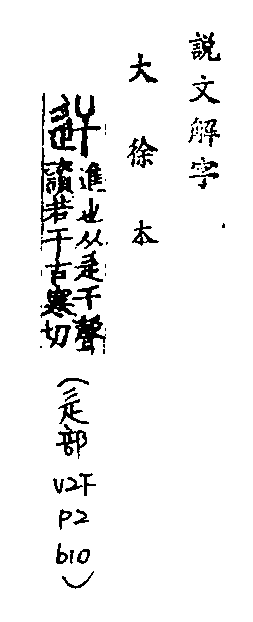 説文解字
大徐本
䢨進也从辵干聲
讀若干古寒切
(辵部
V2F
P2
b10)